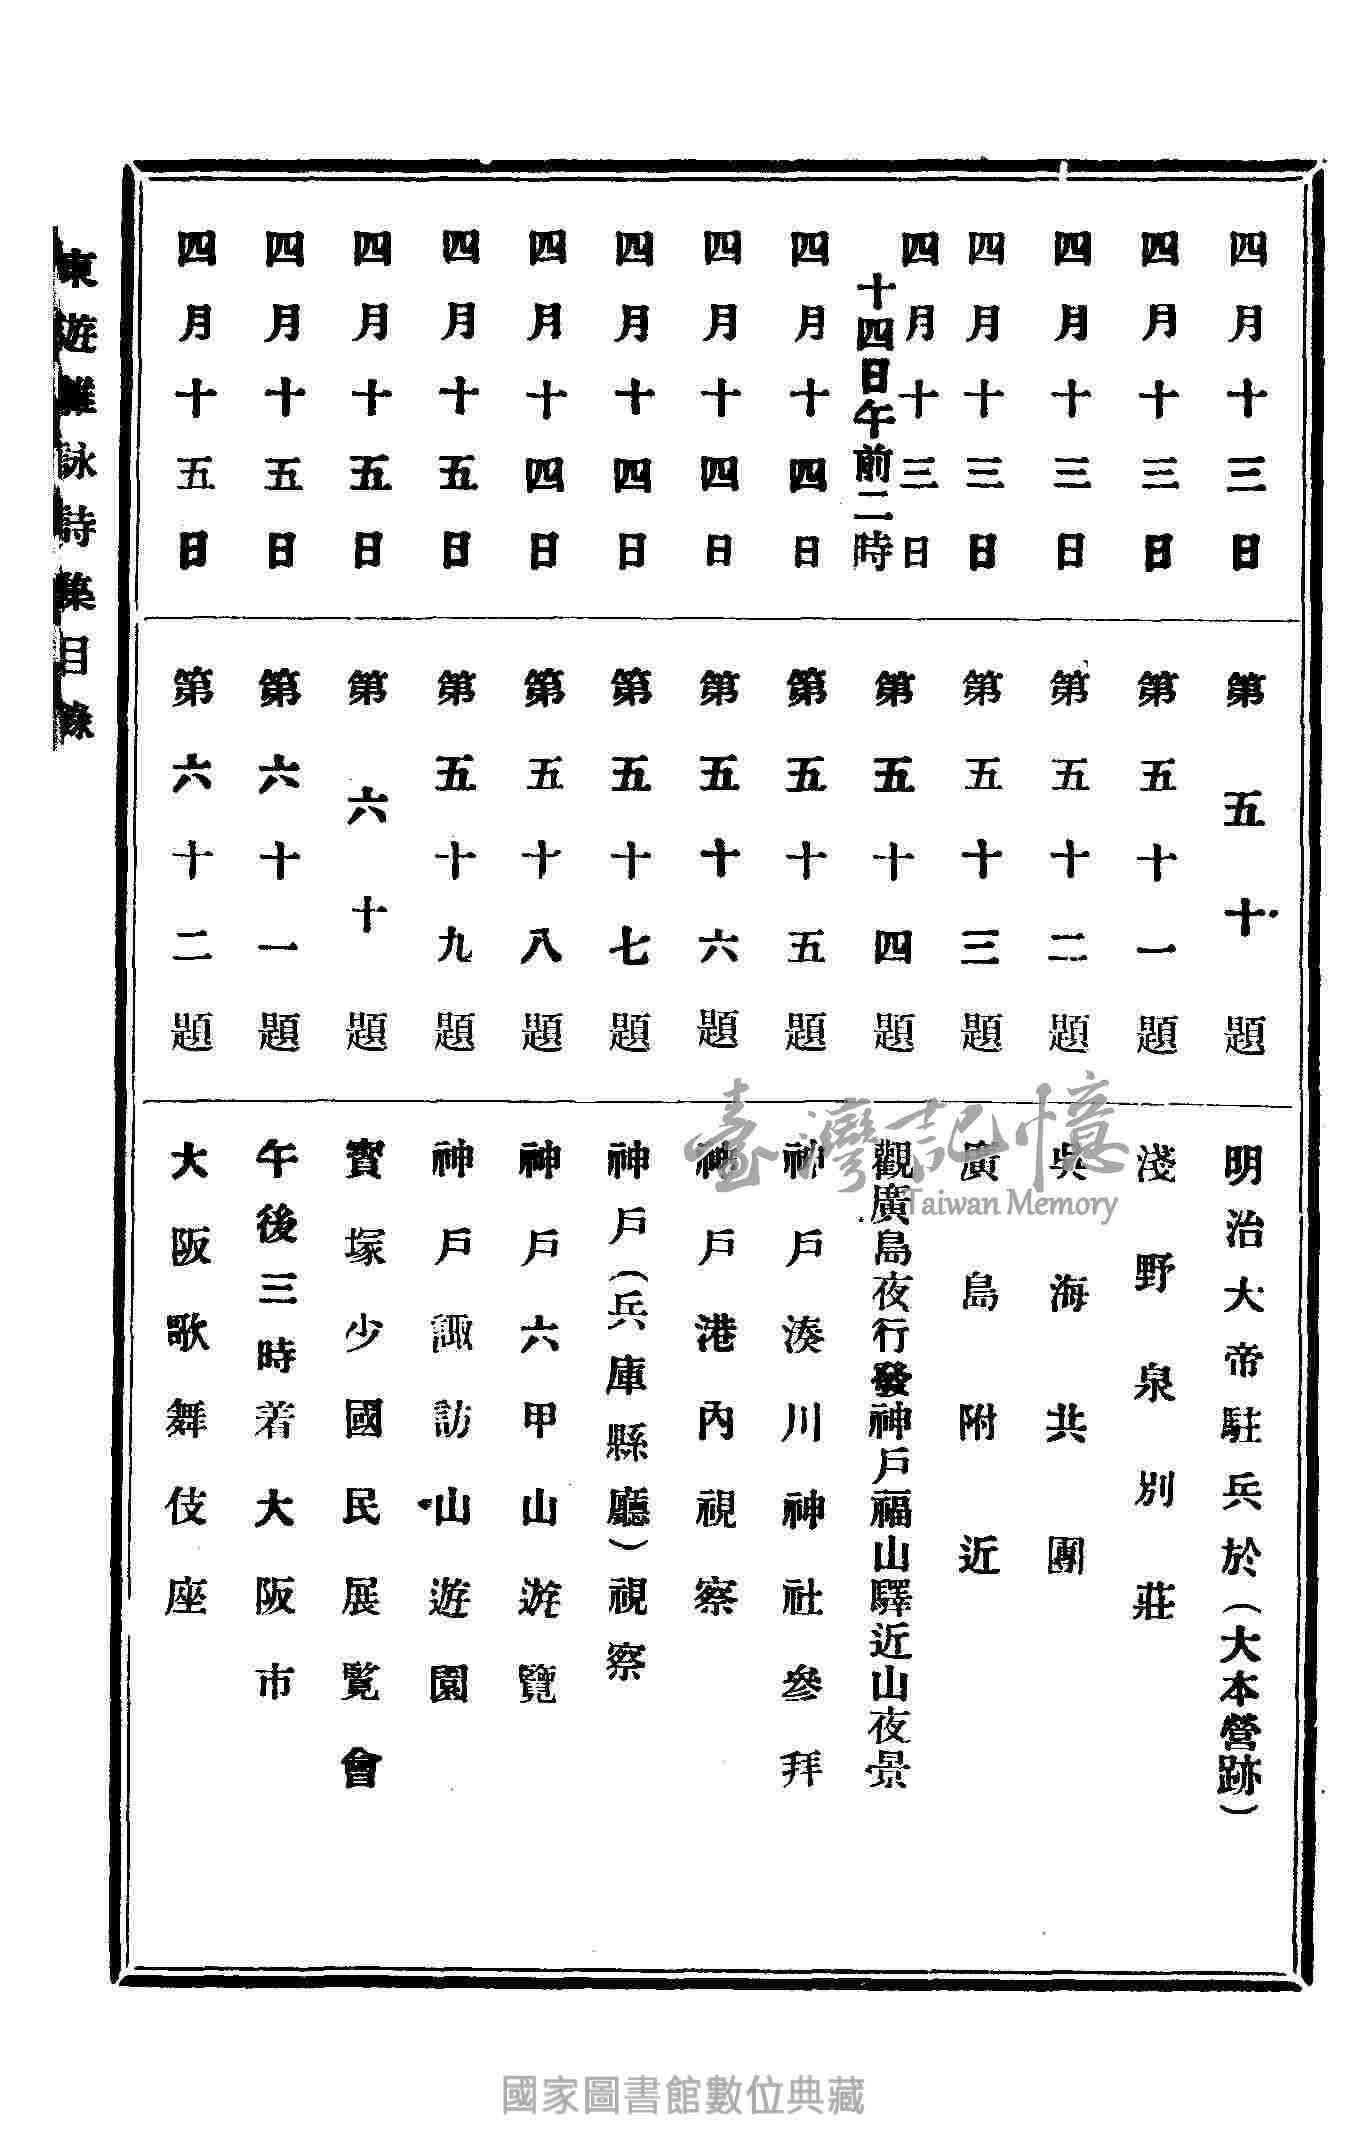 四月十三日 第五十題 明治大帝駐兵於（大本營跡）
四月十三日 第五十一題 淺野泉別莊
四月十三日 第五十二題 吳海共團
四月十三日 第五十三題 廣島附近
四月十三日 十四日午前二時 第五十四題 觀廣島夜行發神戶福山驛近山夜景
四月十四日 第五十五題 神戶湊川神社參拜
四月十四日 第五十六題 神戶港內視察
四月十四日 第五十七題 神戶（兵庫縣廳）視察
四月十四日 第五十八題 神戶六甲山遊覽
四月十五日 第五十九題 神戶諏訪山遊園
四月十五日 第六十題 寳塚少國民展覧會
四月十五日 第六十一題 午後三時着大阪市
四月十五日 第六十二題 大阪歌舞伎座
東遊雜詠詩集目錄
臺灣記憶
Taiwan Memory
國家圖書館數位典藏